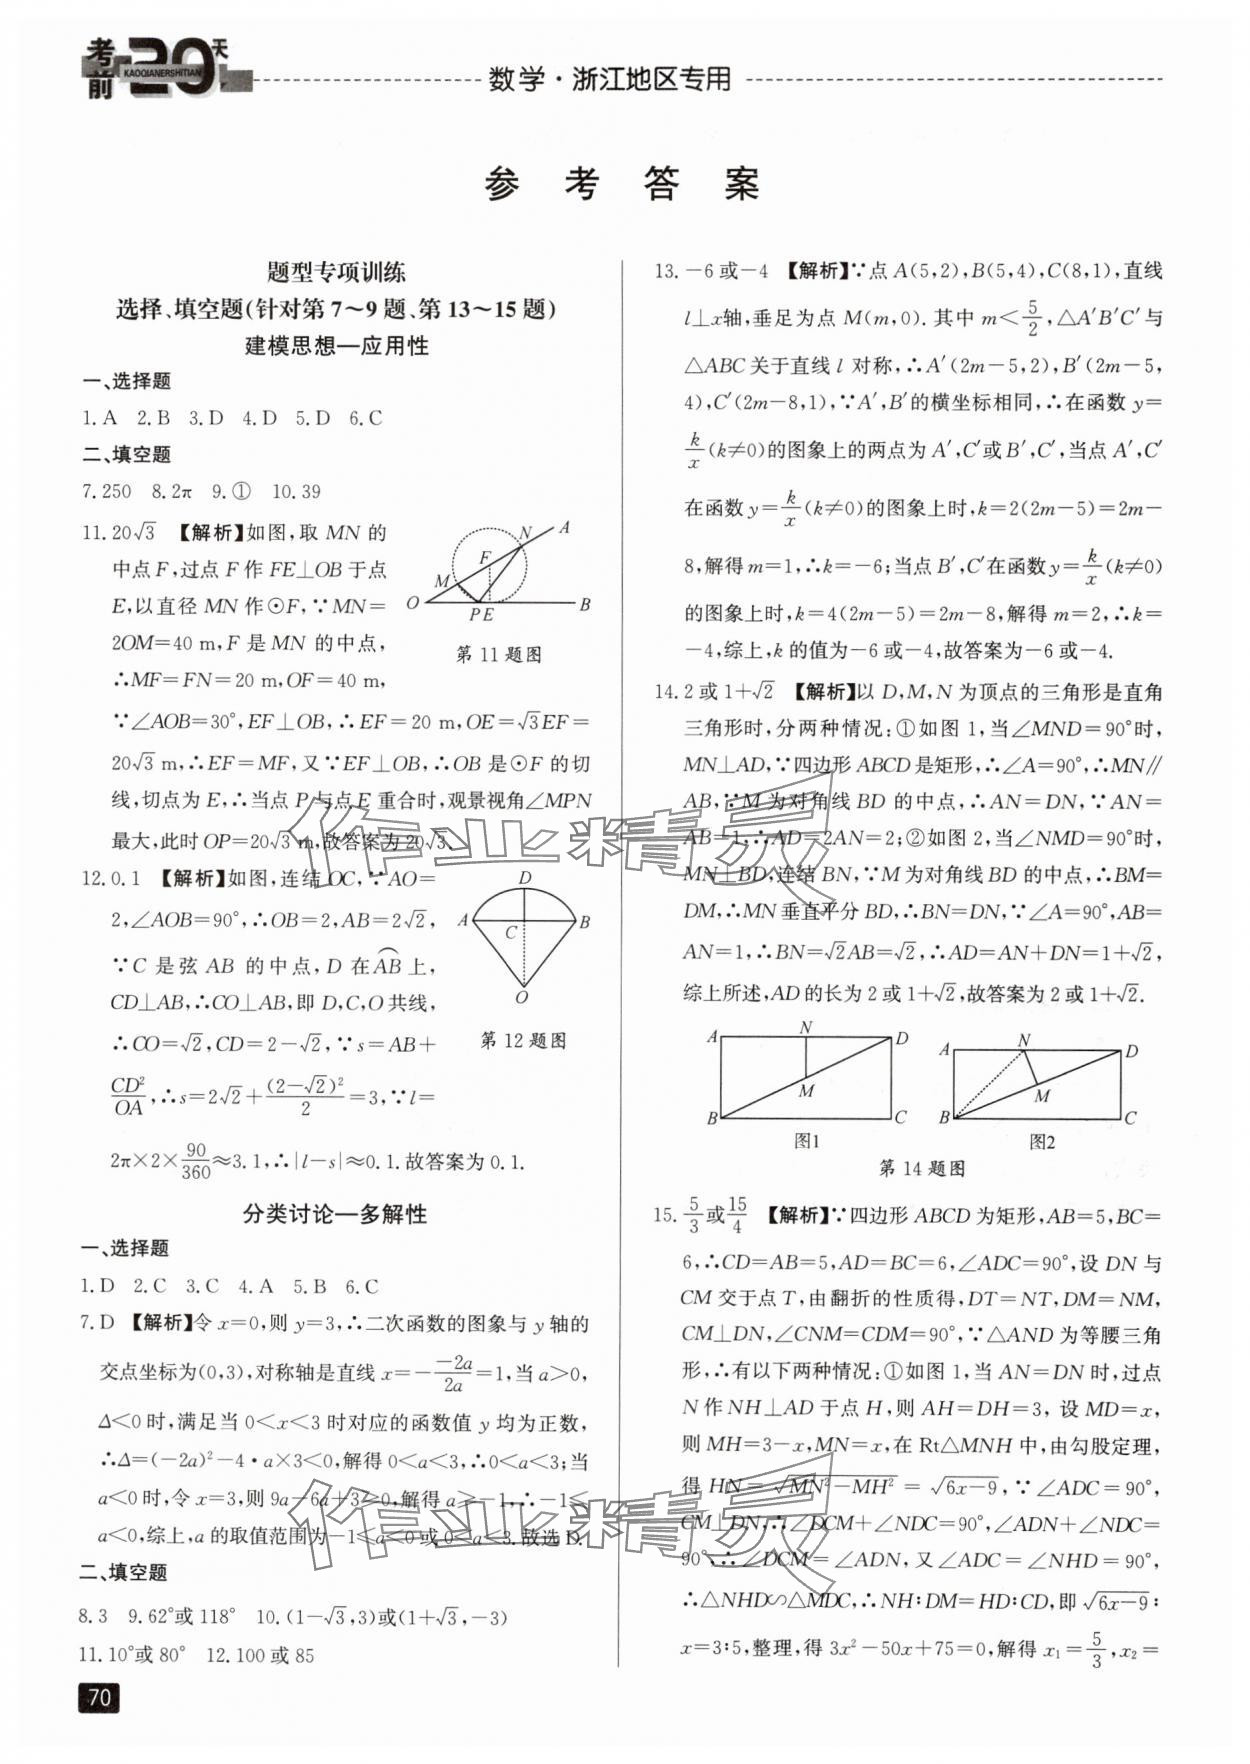 考前20天
KAOQIANERSHITIAN
数学·浙江地区专用
参 考 答 案
题型专项训练
选择、填空题(针对第7～9题、第13～15题)
建模思想—应用性
一、选择题
1.A 2.B 3.D 4.D 5.D 6.C
二、填空题
7.250 8.2π 9.① 10.39
11.20√3 【解析】如图,取 MN 的
中点F,过点 F 作 FE⊥OB 于点
E,以直径 MN 作⊙F,∵MN=
2OM=40 m,F 是 MN 的中点,
∴MF=FN=20 m,OF=40 m,
A
N
F
M
O
P E
B
第11题图
∵∠AOB=30°,EF⊥OB,∴EF=20 m,OE=√3EF=
20√3 m,∴EF=MF,又∵EF⊥OB,∴OB是⊙F 的切
线,切点为E,∴当点P与点E重合时,观景视角∠MPN
最大,此时OP=20√3 m,故答案为20√3.
12.0.1 【解析】如图,连结OC,∵AO=
2,∠AOB=90°,∴OB=2,AB=2√2,
∵C 是弦 AB 的中点,D 在AB上,
CD⊥AB,∴CO⊥AB,即D,C,O共线,
∴CO=√2,CD=2−√2,∵s=AB+
D
A
C
B
O
第12题图
CD²/OA,∴s=2√2+(2−√2)²/2=3,∵l=
2π×2×90/360≈3.1,∴|l−s|≈0.1.故答案为0.1.
分类讨论—多解性
一、选择题
1.D 2.C 3.C 4.A 5.B 6.C
7.D 【解析】令x=0,则y=3,∴二次函数的图象与y轴的
交点坐标为(0,3),对称轴是直线x=−−2a/2a=1,当a>0,
Δ<0时,满足当0<x<3时对应的函数值y均为正数,
∴Δ=(−2a)²−4·a×3<0,解得0<a<3,∴0<a<3;当
a<0时,令x=3,则9a−6a+3≥0,解得a≥−1,∴−1≤
a<0,综上,a的取值范围为−1≤a<0或0<a<3.故选D.
二、填空题
8.3 9.62°或118° 10.(1−√3,3)或(1+√3,−3)
11.10°或80° 12.100或85
70
13.−6或−4 【解析】∵点A(5,2),B(5,4),C(8,1),直线
l⊥x轴,垂足为点M(m,0).其中m<5/2,△A′B′C′与
△ABC关于直线l对称,∴A′(2m−5,2),B′(2m−5,
4),C′(2m−8,1),∵A′,B′的横坐标相同,∴在函数y=
k/x(k≠0)的图象上的两点为A′,C′或B′,C′,当点A′,C′
在函数y=k/x(k≠0)的图象上时,k=2(2m−5)=2m−
8,解得m=1,∴k=−6;当点B′,C′在函数y=k/x(k≠0)
的图象上时,k=4(2m−5)=2m−8,解得m=2,∴k=
−4,综上,k的值为−6或−4,故答案为−6或−4.
14.2或1+√2 【解析】以D,M,N为顶点的三角形是直角
三角形时,分两种情况:①如图1,当∠MND=90°时,
MN⊥AD,∵四边形ABCD是矩形,∴∠A=90°,∴MN∥
AB,∵M为对角线BD的中点,∴AN=DN,∵AN=
AB=1,∴AD=2AN=2;②如图2,当∠NMD=90°时,
MN⊥BD,连结BN,∵M为对角线BD的中点,∴BM=
DM,∴MN垂直平分BD,∴BN=DN,∵∠A=90°,AB=
AN=1,∴BN=√2AB=√2,∴AD=AN+DN=1+√2,
综上所述,AD的长为2或1+√2,故答案为2或1+√2.
A N D
M
B C
图1
A N D
M
B C
图2
第14题图
15.5/3或15/4 【解析】∵四边形ABCD为矩形,AB=5,BC=
6,∴CD=AB=5,AD=BC=6,∠ADC=90°,设DN与
CM交于点T,由翻折的性质得,DT=NT,DM=NM,
CM⊥DN,∠CNM=CDM=90°,∵△AND为等腰三角
形,∴有以下两种情况:①如图1,当AN=DN时,过点
N作NH⊥AD于点H,则AH=DH=3,设MD=x,
则MH=3−x,MN=x,在Rt△MNH中,由勾股定理,
得HN=√MN²−MH²=√6x−9,∵∠ADC=90°,
CM⊥DN,∴∠DCM+∠NDC=90°,∠ADN+∠NDC=
90°,∴∠DCM=∠ADN,又∠ADC=∠NHD=90°,
∴△NHD∽△MDC,∴NH:DM=HD:CD,即√6x−9:
x=3:5,整理,得3x²−50x+75=0,解得x₁=5/3,x₂=
作业精灵
作业精灵